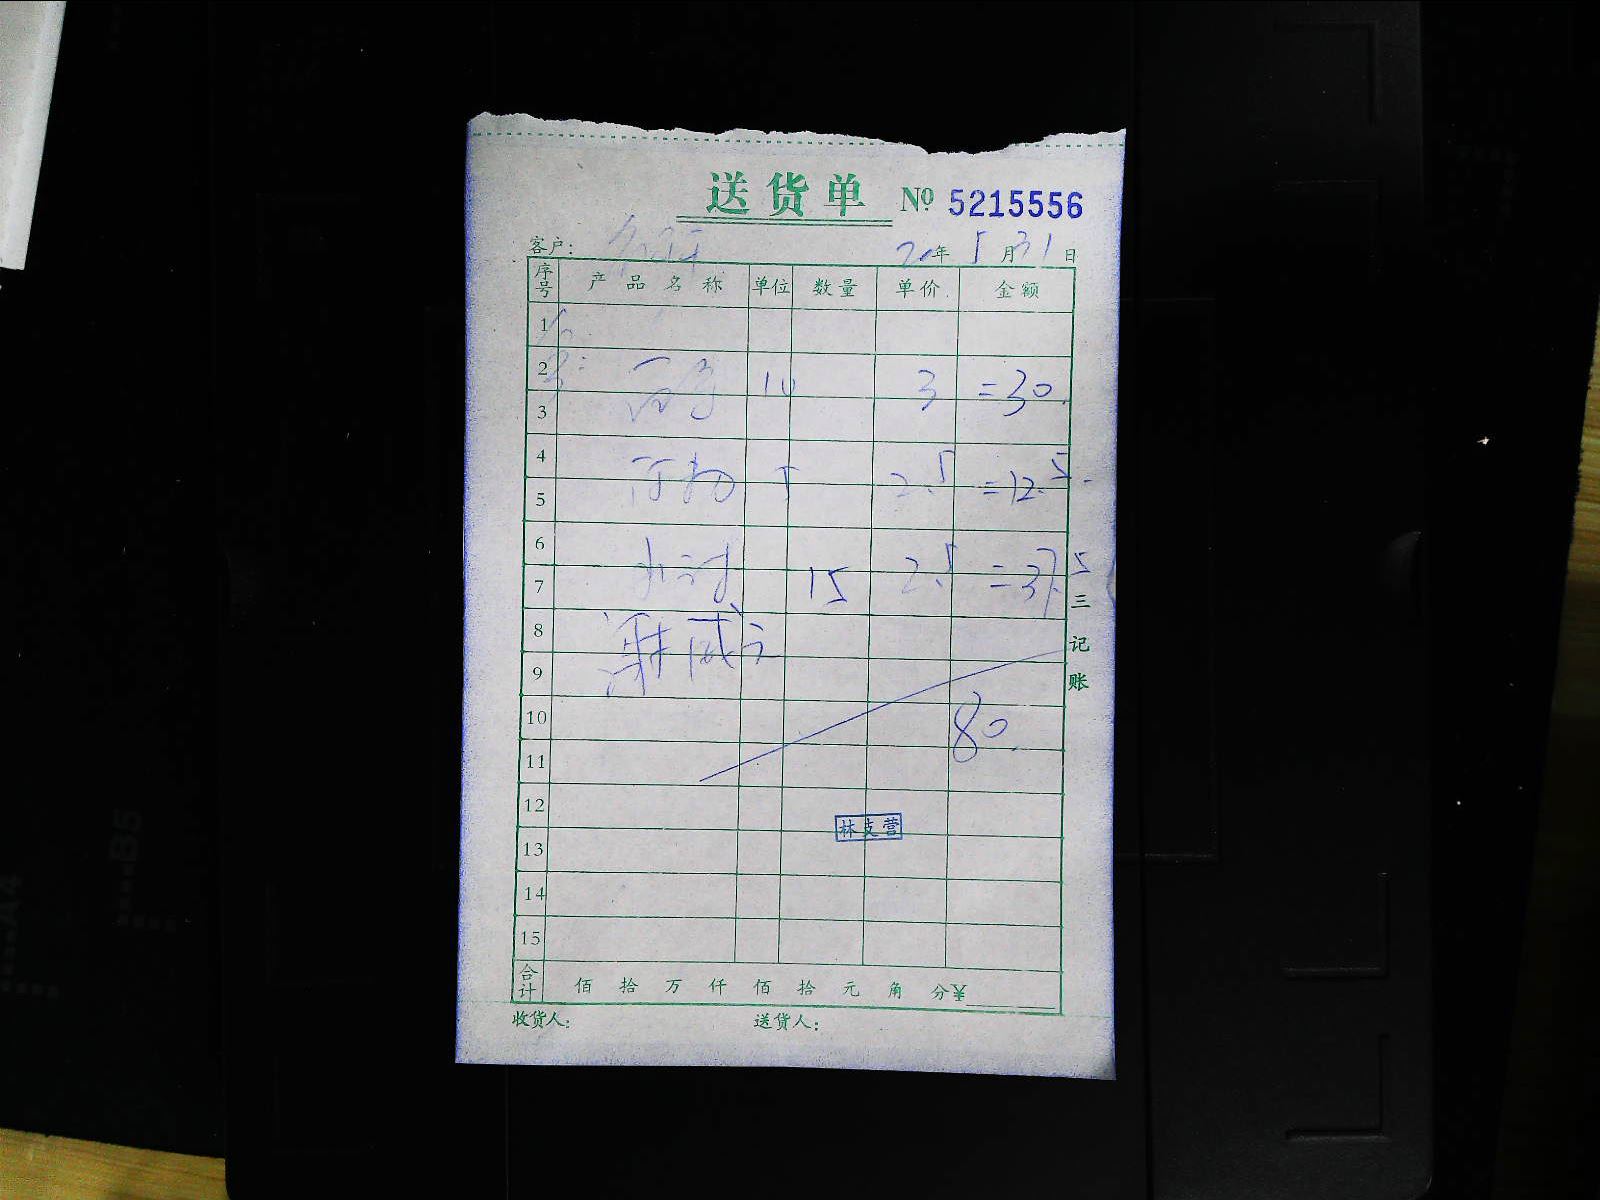 送货单 № 5215556
客户: 20年5月31日
序号 产品名称 单位 数量 单价 金额
1
2 10 3 =30.
3
4 5 2.5 =12.5
5
6 15 2.5 =37.5
7
8
9
10 80.
11
12
13
14
15
三记账
林支营
合计 佰 拾 万 仟 佰 拾 元 角 分¥
收货人: 送货人:
B5
A4